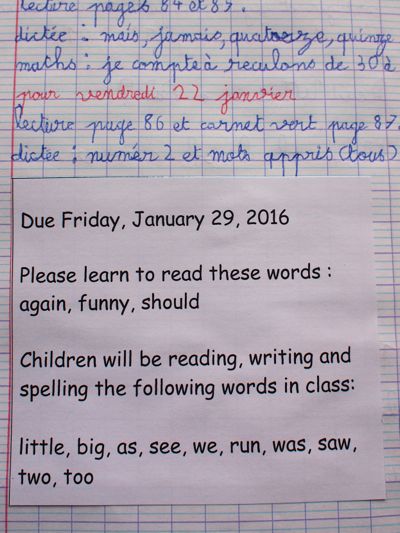 lecture pages 84 et 85.
dictée : mais, jamais, quatorze, quinze
maths : je compte à reculons de 30 à
pour vendredi 22 janvier
lecture page 86 et carnet vert page 87.
dictée : numér 2 et mots appris (tous)
Due Friday, January 29, 2016
Please learn to read these words :
again, funny, should
Children will be reading, writing and
spelling the following words in class:
little, big, as, see, we, run, was, saw,
two, too